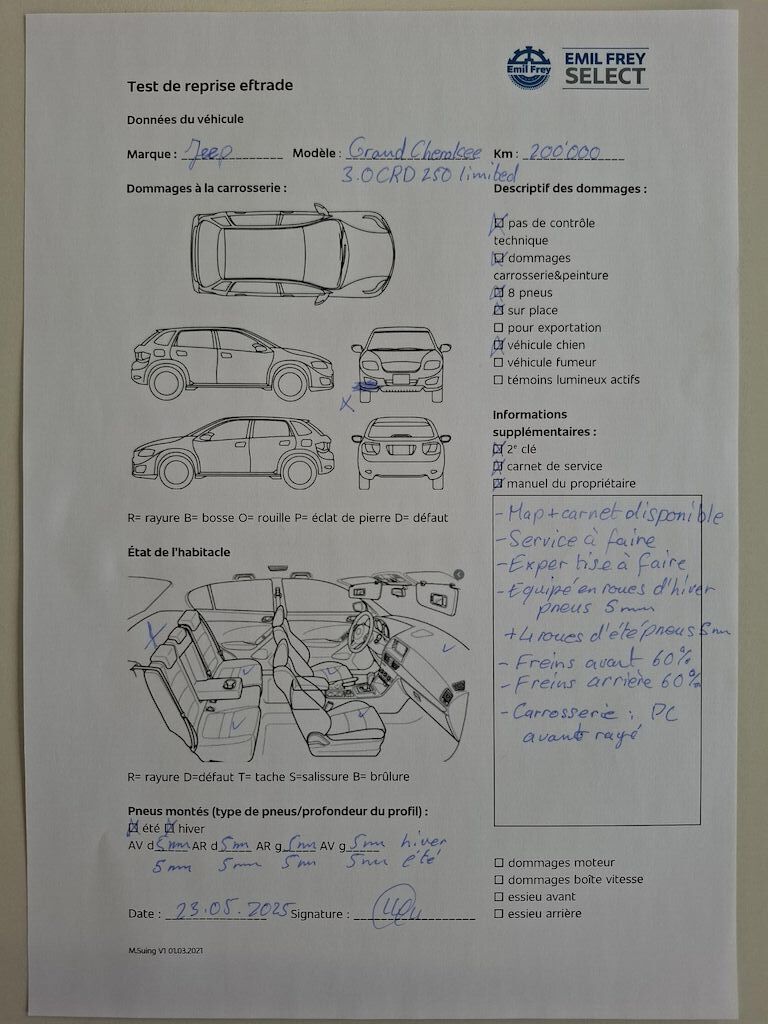 Emil Frey
EMIL FREY
SELECT
Test de reprise eftrade
Données du véhicule
Marque : Jeep Modèle : Grand Cherokee Km : 200'000
3.0CRD 250 limited
Dommages à la carrosserie :
Descriptif des dommages :
pas de contrôle
technique
dommages
carrosserie&peinture
8 pneus
sur place
pour exportation
véhicule chien
véhicule fumeur
témoins lumineux actifs
Informations
supplémentaires :
2e clé
carnet de service
manuel du propriétaire
R= rayure B= bosse O= rouille P= éclat de pierre D= défaut
- Map + carnet disponible
- Service à faire
- Expertise à faire
- Equipé en roues d'hiver
pneus 5mm
+ 4 roues d'été pneus 5mm
- Freins avant 60%
- Freins arrière 60%
- Carrosserie : PC
avant rayé
État de l'habitacle
R= rayure D=défaut T= tache S=salissure B= brûlure
Pneus montés (type de pneus/profondeur du profil) :
été hiver
AV d 5mm AR d 5mm AR g 5mm AV g 5mm hiver
5mm 5mm 5mm 5mm été
dommages moteur
dommages boîte vitesse
essieu avant
essieu arrière
Date : 23.05.2025 Signature :
M.Suing V1 01.03.2021